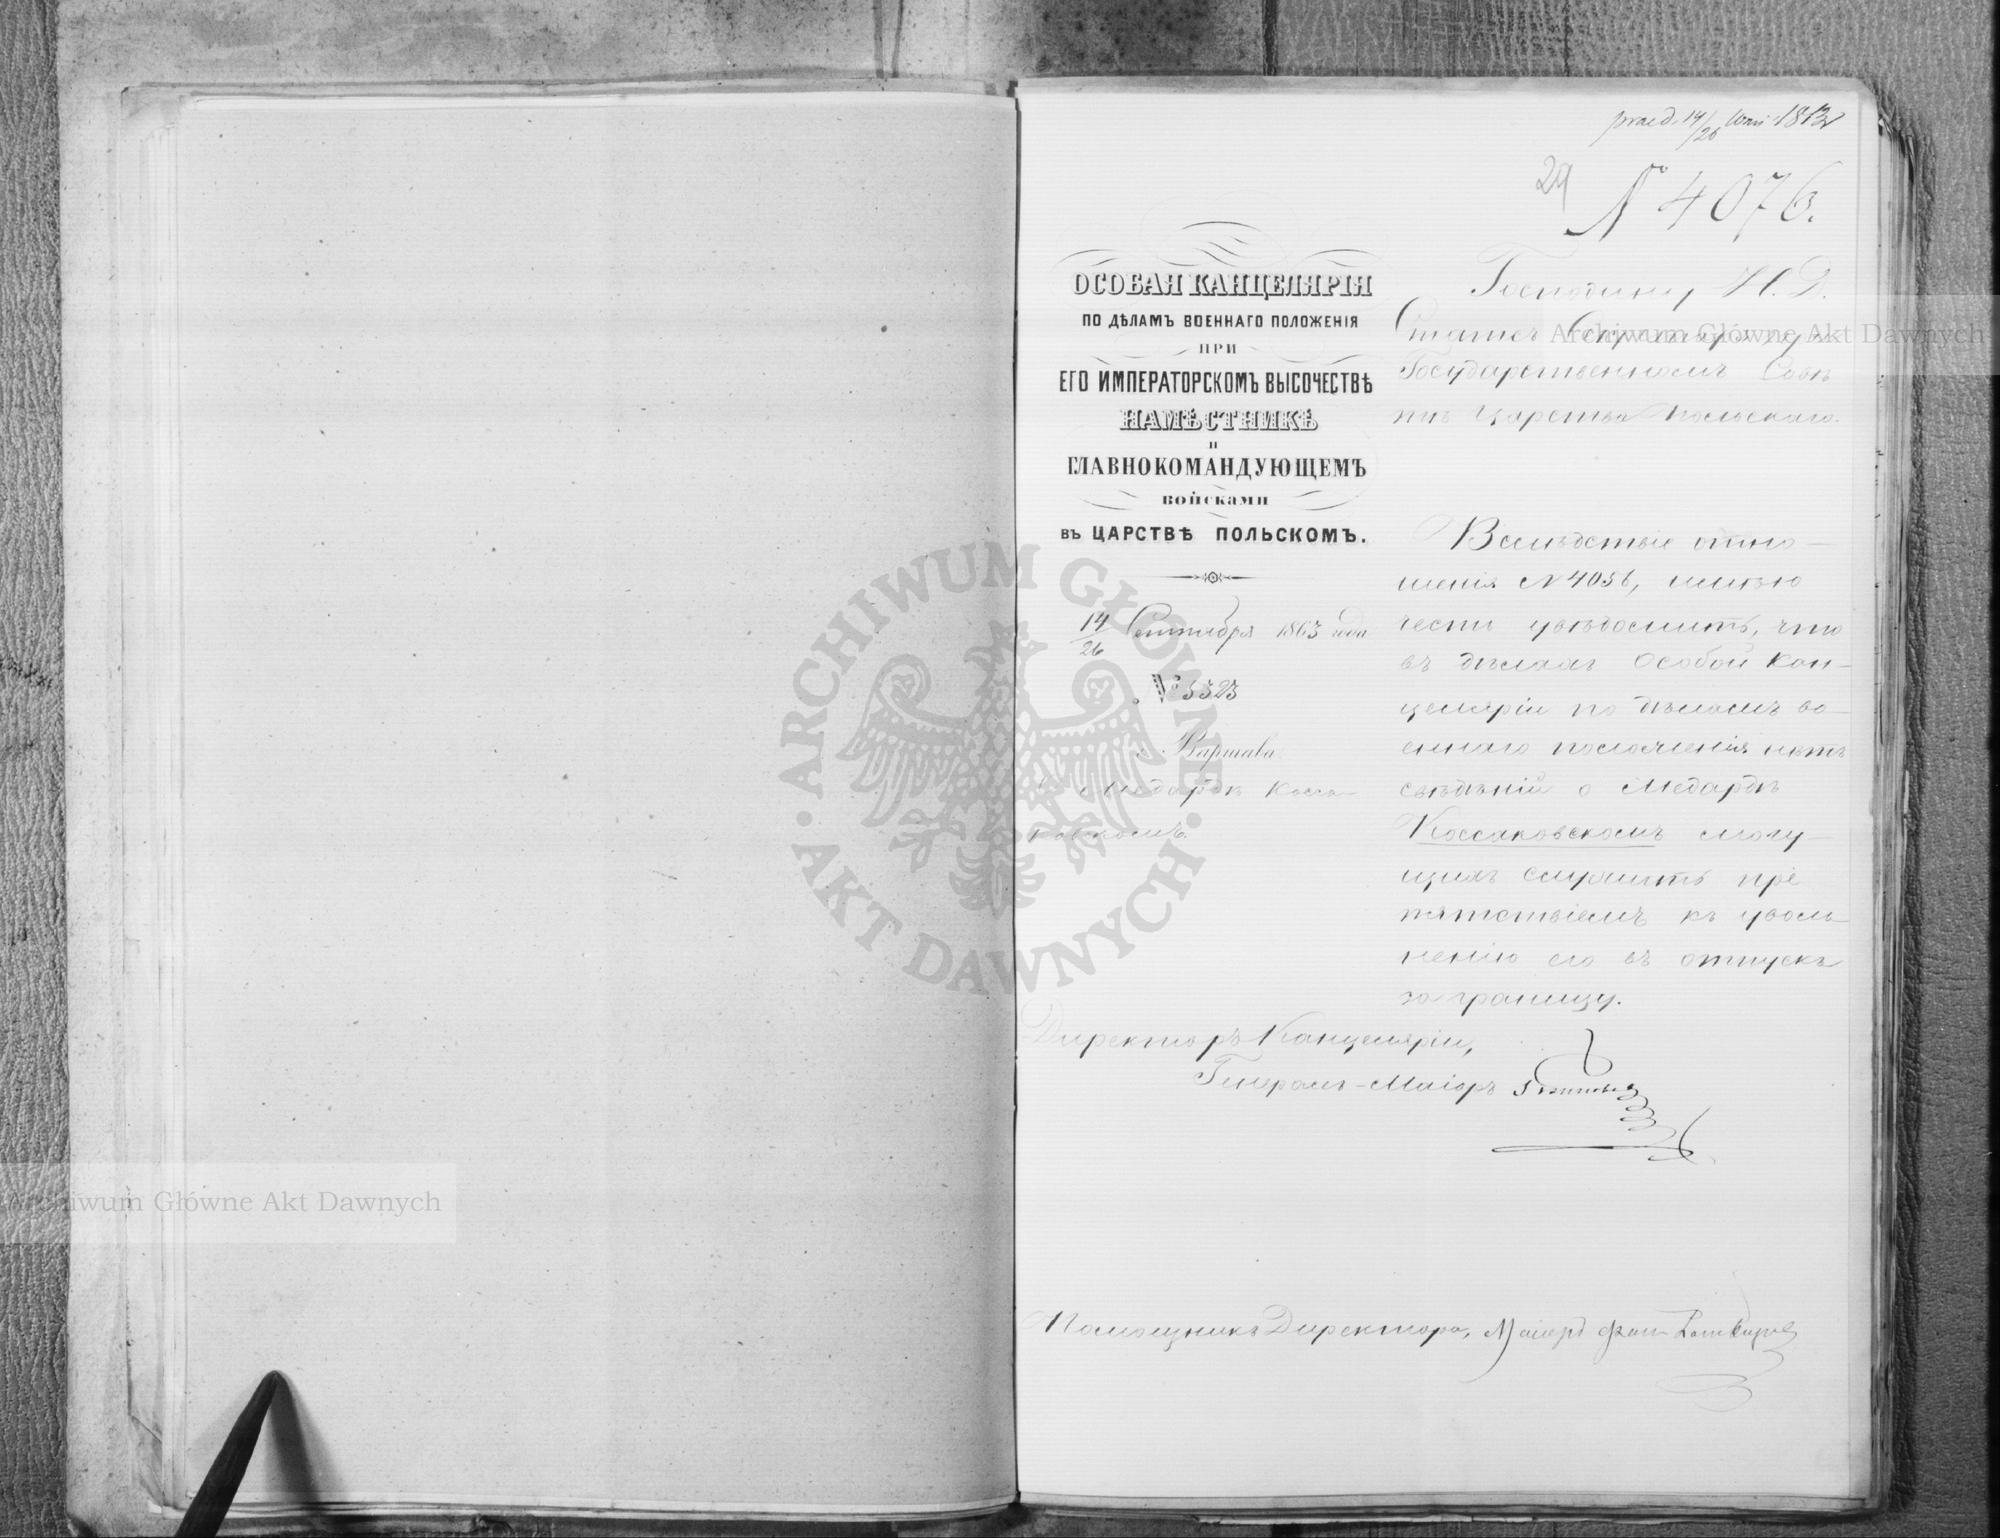 praes. 14/26 1863
29
№ 4076.
ОСОБАЯ КАНЦЕЛЯРІЯ
ПО ДѢЛАМЪ ВОЕННАГО ПОЛОЖЕНІЯ
ПРИ
ЕГО ИМПЕРАТОРСКОМЪ ВЫСОЧЕСТВѢ
НАМѢСТНИКѢ
И
ГЛАВНОКОМАНДУЮЩЕМЪ
ВОЙСКАМИ
ВЪ ЦАРСТВѢ ПОЛЬСКОМЪ.
14/26 Сентября 1863 года
№ 5323
г. Варшава.
О Медардѣ Косса-
ковскомъ.
Господину И. Д.
Статсъ Секретаря при
Государственномъ Совѣ
тѣ Царства Польскаго.
Вслѣдствіе отно-
шенія № 4056, имѣю
честь увѣдомить, что
въ дѣлахъ Особой Кан-
целяріи по дѣламъ во-
еннаго положенія нѣтъ
свѣдѣній о Медардѣ
Коссаковскомъ могу-
щихъ служить пре
пятствіемъ къ уволь-
ненію его въ отпускъ
за границу.
Директоръ Канцеляріи,
Генералъ-Маіоръ
Помощникъ Директора, Маіоръ фонъ
ARCHIWUM GŁÓWNE AKT DAWNYCH
Archiwum Główne Akt Dawnych
Archiwum Główne Akt Dawnych